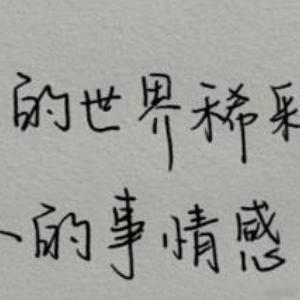 的世界稀
的事情感